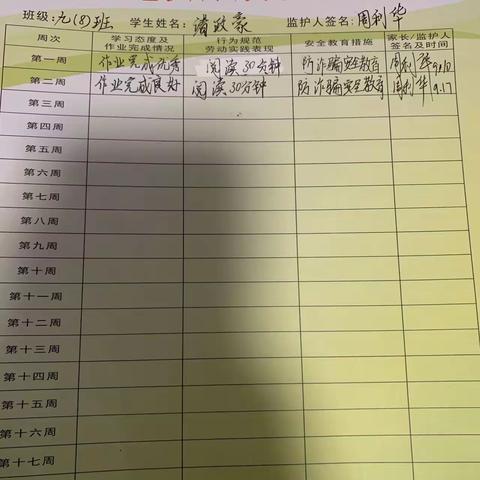 班级:九(8)班 学生姓名: 诸跃豪 监护人签名: 周利华
周次 学习态度及作业完成情况 行为规范劳动实践表现 安全教育措施 家长/监护人签名及时间
第一周 作业完成优秀 阅读30分钟 防诈骗安全教育 周利华9.10
第二周 作业完成良好 阅读30分钟 防诈骗安全教育 周利华9.17
第三周
第四周
第五周
第六周
第七周
第八周
第九周
第十周
第十一周
第十二周
第十三周
第十四周
第十五周
第十六周
第十七周